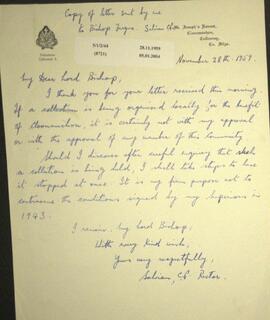 Copy of letter sent by me
to Bishop
St. Joseph's Retreat,
Cloonamahon,
Collooney,
Co. Sligo.
5/1/2/44
28.11.1959
(0721)
05.01.2004
November 28th 1959.
My Dear Lord Bishop,
I thank you for your letter received this morning.
If a collection is being organised locally for the benefit
of Cloonamahon, it is certainly not with my approval
or with the approval of any member of this Community
Should I discover after careful enquiry that such
a collection is being held, I shall take steps to have
it stopped at once. It is my firm purpose not to
contravene the conditions signed by my Superiors in
1943.
I remain, My Lord Bishop,
With every kind wish,
Yours very respectfully,
C.P. Rector.